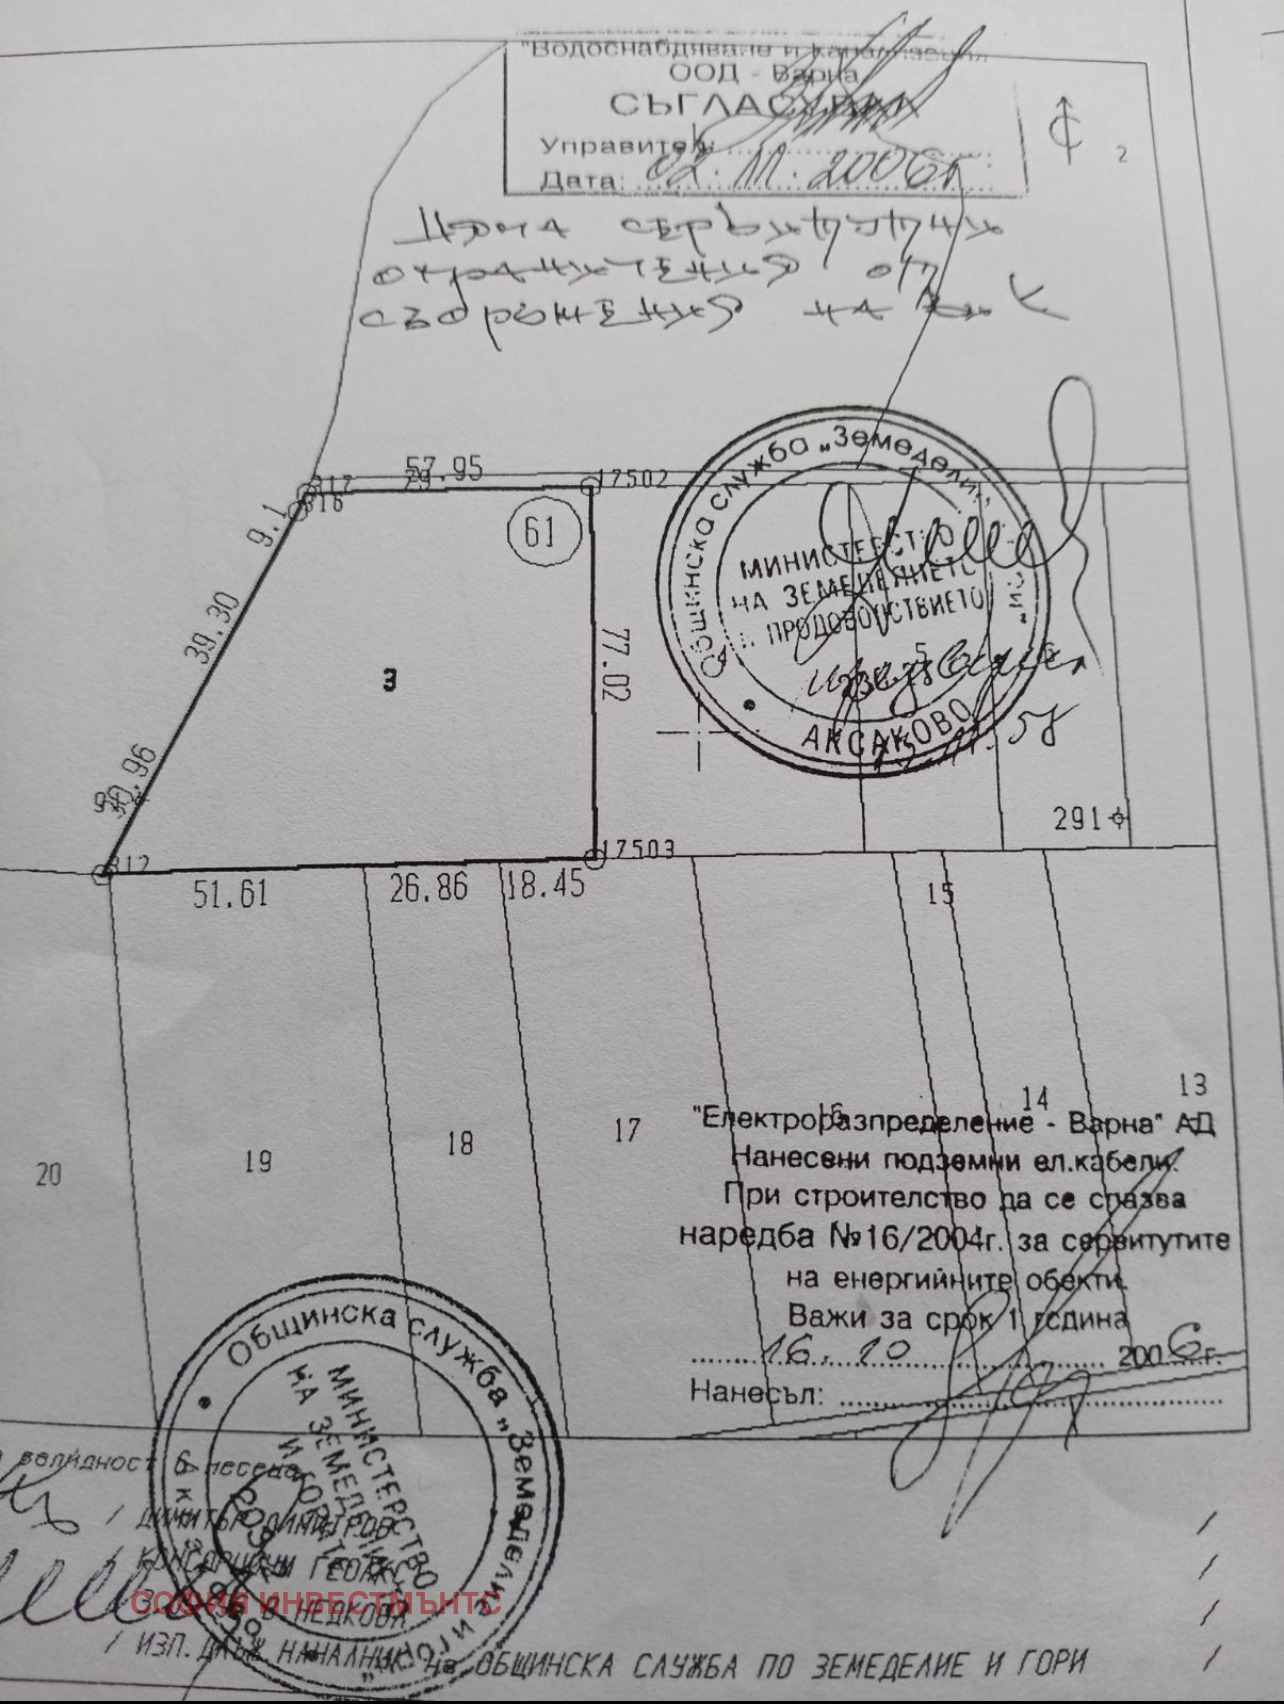 "Водоснабдяване и канализация
ООД - Варна
СЪГЛАСУВАЛ
Управител:
Дата: 02.11.2006г.
2
Няма сервитутни
ограничения от
съоръжения на ВиК
57.95
17502
316
9.1
61
39.30
3
77.02
Общинска служба „Земеделие
МИНИСТЕРСТВО
НА ЗЕМЕДЕЛИЕТО
И ПРОДОВОЛСТВИЕТО
АКСАКОВО
5
6
291
17503
51.61
26.86
18.45
15
14
13
16
17
18
19
20
"Електроразпределение - Варна" АД
Нанесени подземни ел.кабели.
При строителство да се спазва
наредба №16/2004г. за сервитутите
на енергийните обекти.
Важи за срок 1 година
16.10 2006г.
Нанесъл:
Общинска служба „Земеделие и гори"
МИНИСТЕРСТВО
НА ЗЕМЕДЕЛИЕТО
И ГОРИТЕ
валидност 6 месеца
/ ДИМИТЪР ДИМИТРОВ /
/ КОНСОРЦИУМ /
НЕДКОВА /
СОФИЯ ИНВЕСТМЪНТС
/ ИЗП. ДЛЪЖ. НАЧАЛНИК на ОБЩИНСКА СЛУЖБА ПО ЗЕМЕДЕЛИЕ И ГОРИ /